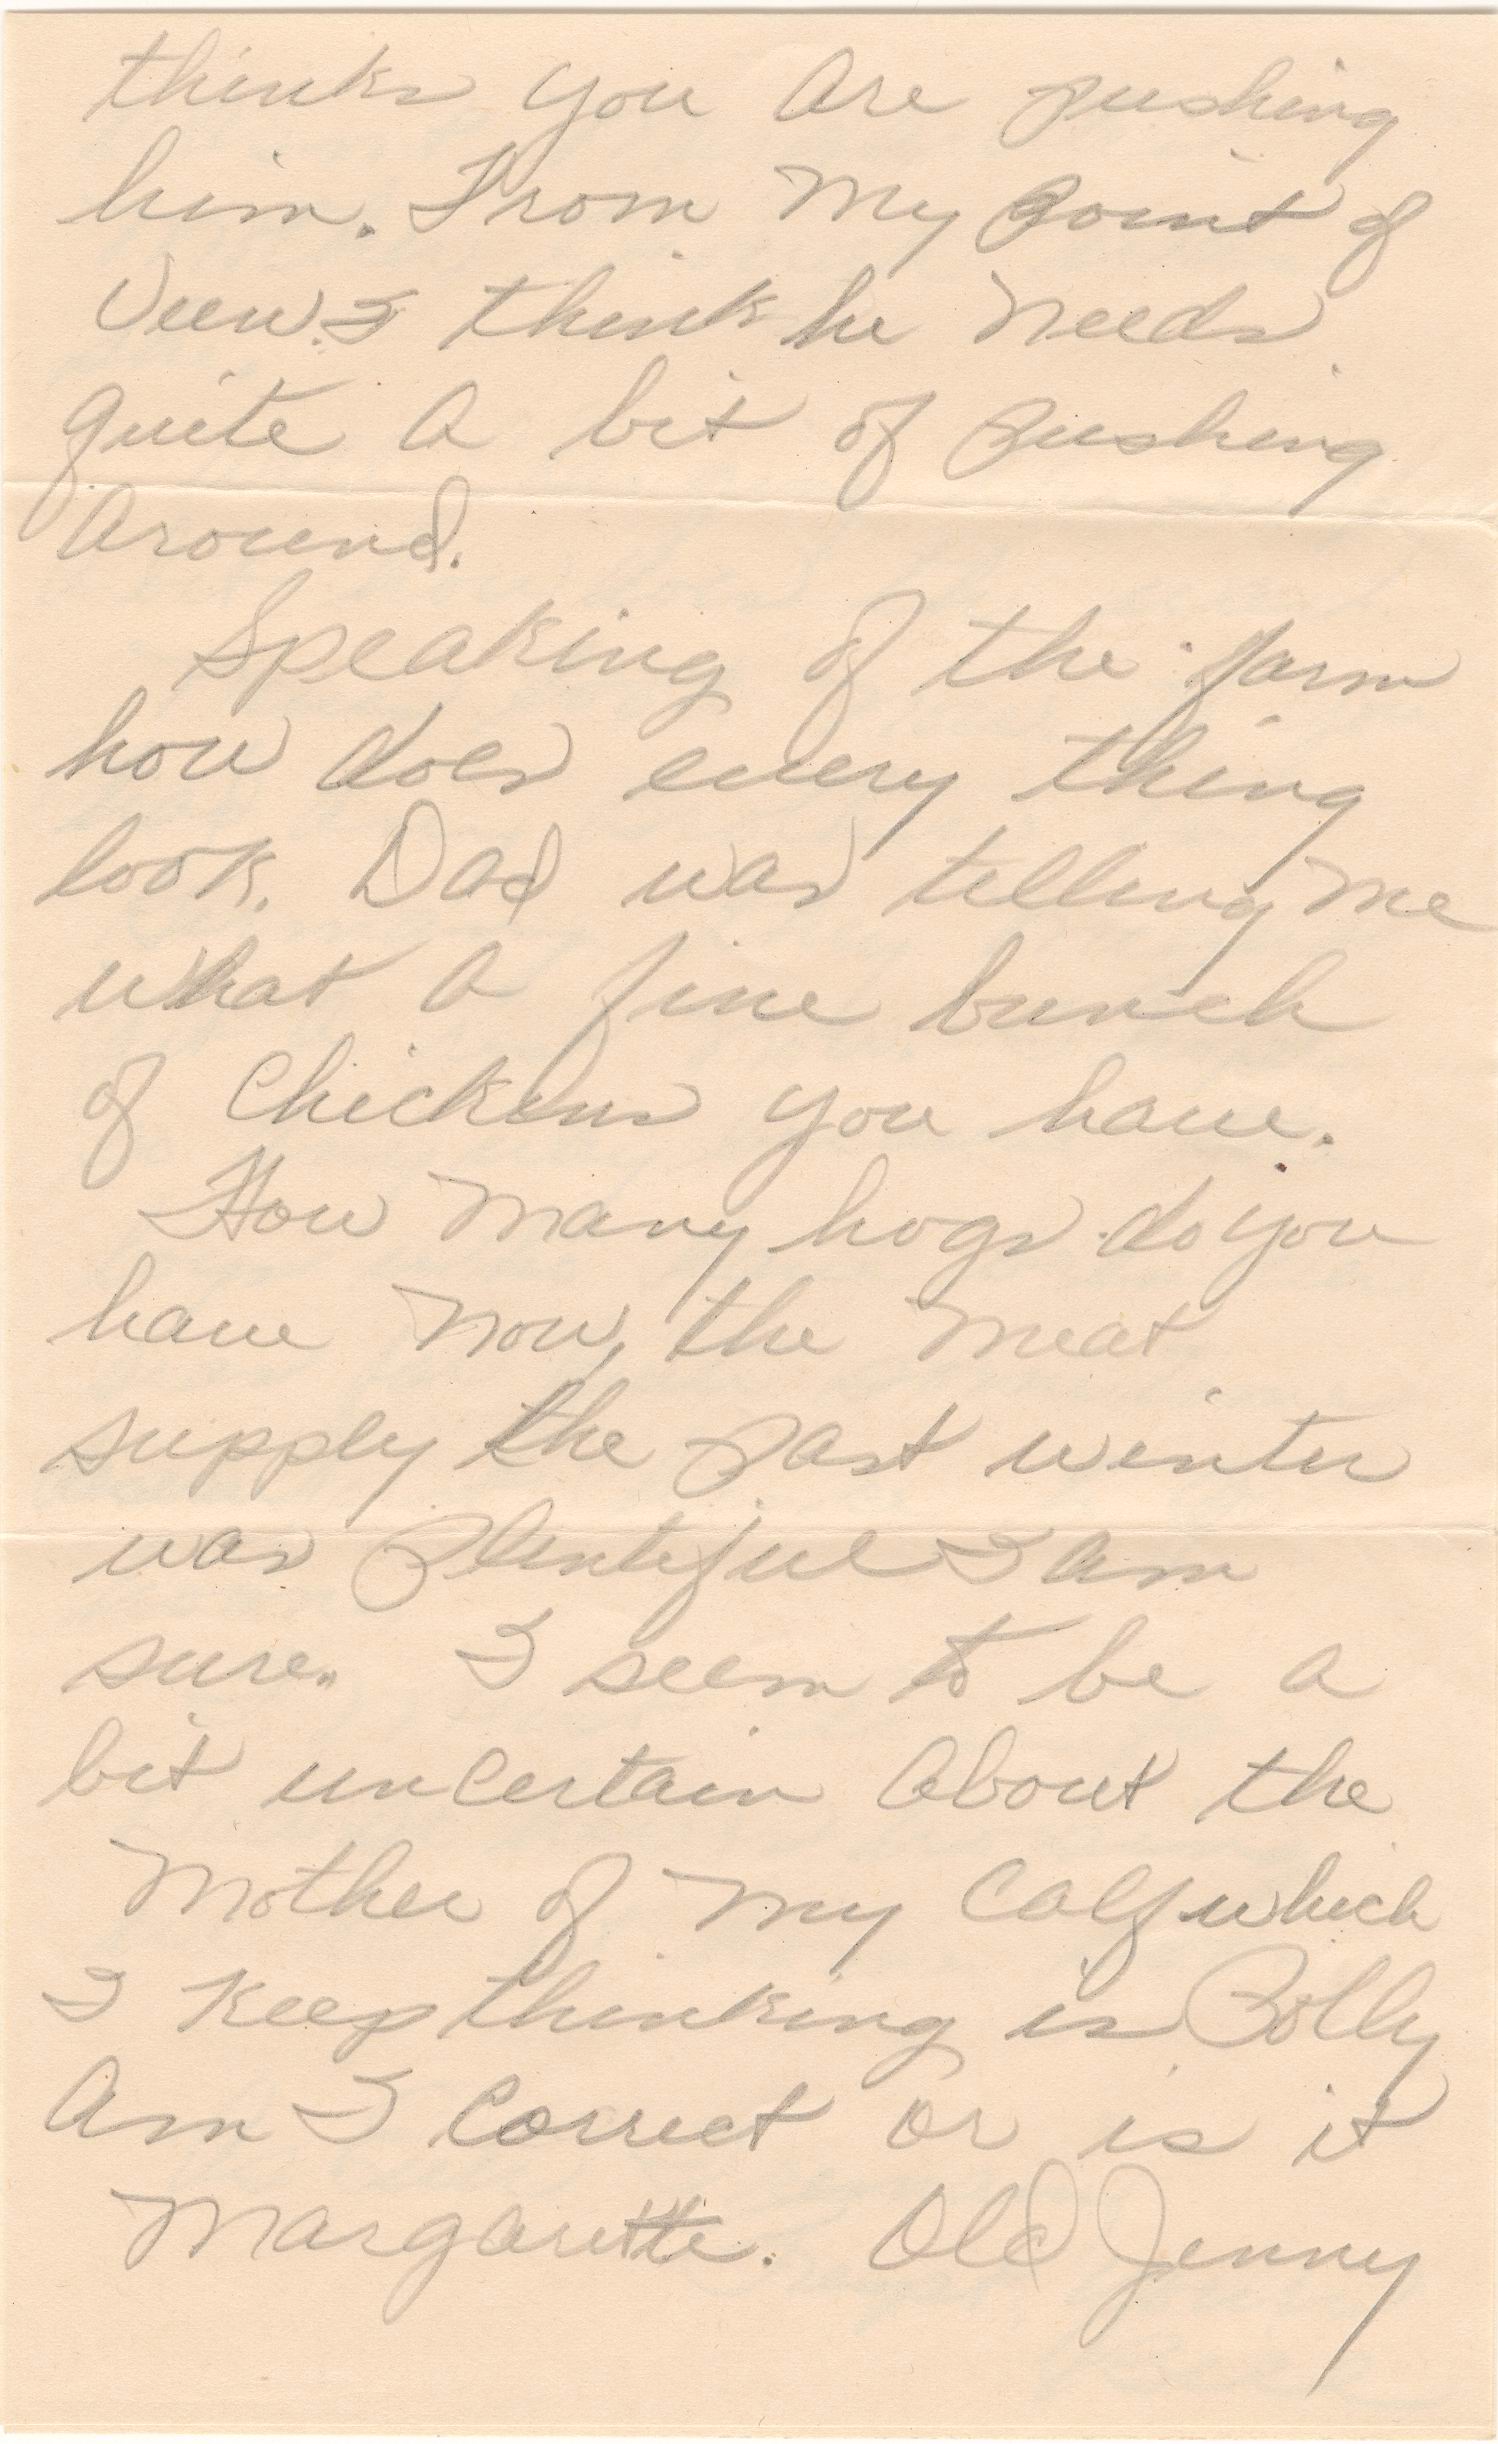 thinks you are pushing
him. From My Point of
View. I think he Needs
quite A bit of Pushing
Around.
Speaking of the farm
how does every thing
look. Dad was telling me
what A fine bunch
of Chickens you have.
How Many hogs do you
have Now, the Meat
supply the past winter
was Plentiful I Am
sure. I seem to be a
bit unCertain About the
Mother of My Calf which
I Keep thinking is Polly
Am I Correct or is it
Margarette. Old Jenny